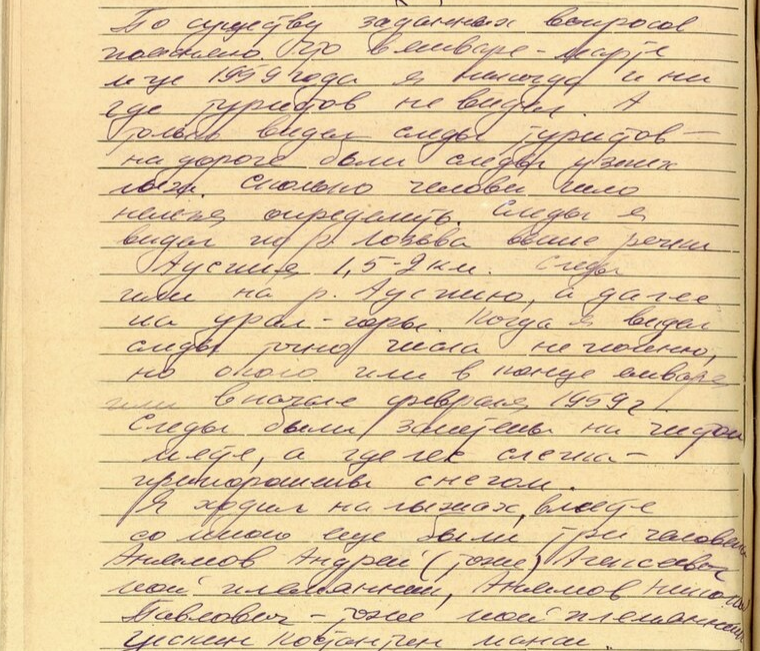 По существу заданных вопросов
поясняю что в январе-марте
м-це 1959 года я никогда и ни
где туристов не видел. А
только видел следы туристов –
на дороге были следы узких
лыж. Сколько человек шло
нельзя определить. Следы я
видел по р. Лозьва выше речки
Ауспия 1,5-2 км. Следы
шли на р. Ауспию, а далее
на урал-горы. Когда я видел
следы точно числа не помню,
но около или в конце января
или в начале февраля 1959 г.
Следы были заметены на чистом
месте, а где лес слегка-
припорошены снегом.
Я ходил на лыжах, вместе
со мною еще были три человека
Анямов Андрей (тоже) Алексеевич
мой племянник, Анямов Николай
Павлович – тоже мой племянник
Константин манси.